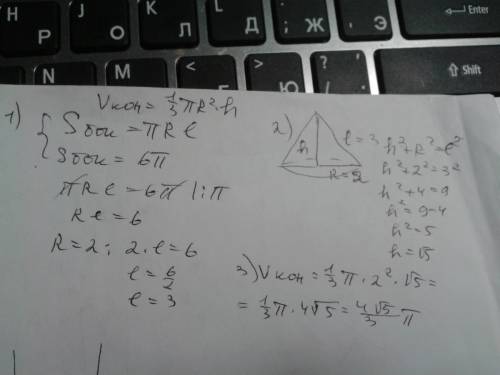 Н Р
Г О
К Л
L Д
: ; Ж
" ' Э
Enter
N Т
M Ь
< , Б
> . Ю
? /
Shift
Vкон = 1/3 πR²·h
1) { Sбок = πRl
Sбок = 6π
πRl = 6π |:π
Rl = 6
R = 2; 2·l = 6
l = 6/2
l = 3
2) h l = 3 R = 2
h² + R² = l²
h² + 2² = 3²
h² + 4 = 9
h² = 9 - 4
h² = 5
h = √5
3) Vкон = 1/3 π · 2² · √5 =
= 1/3 π · 4√5 = 4√5/3 π